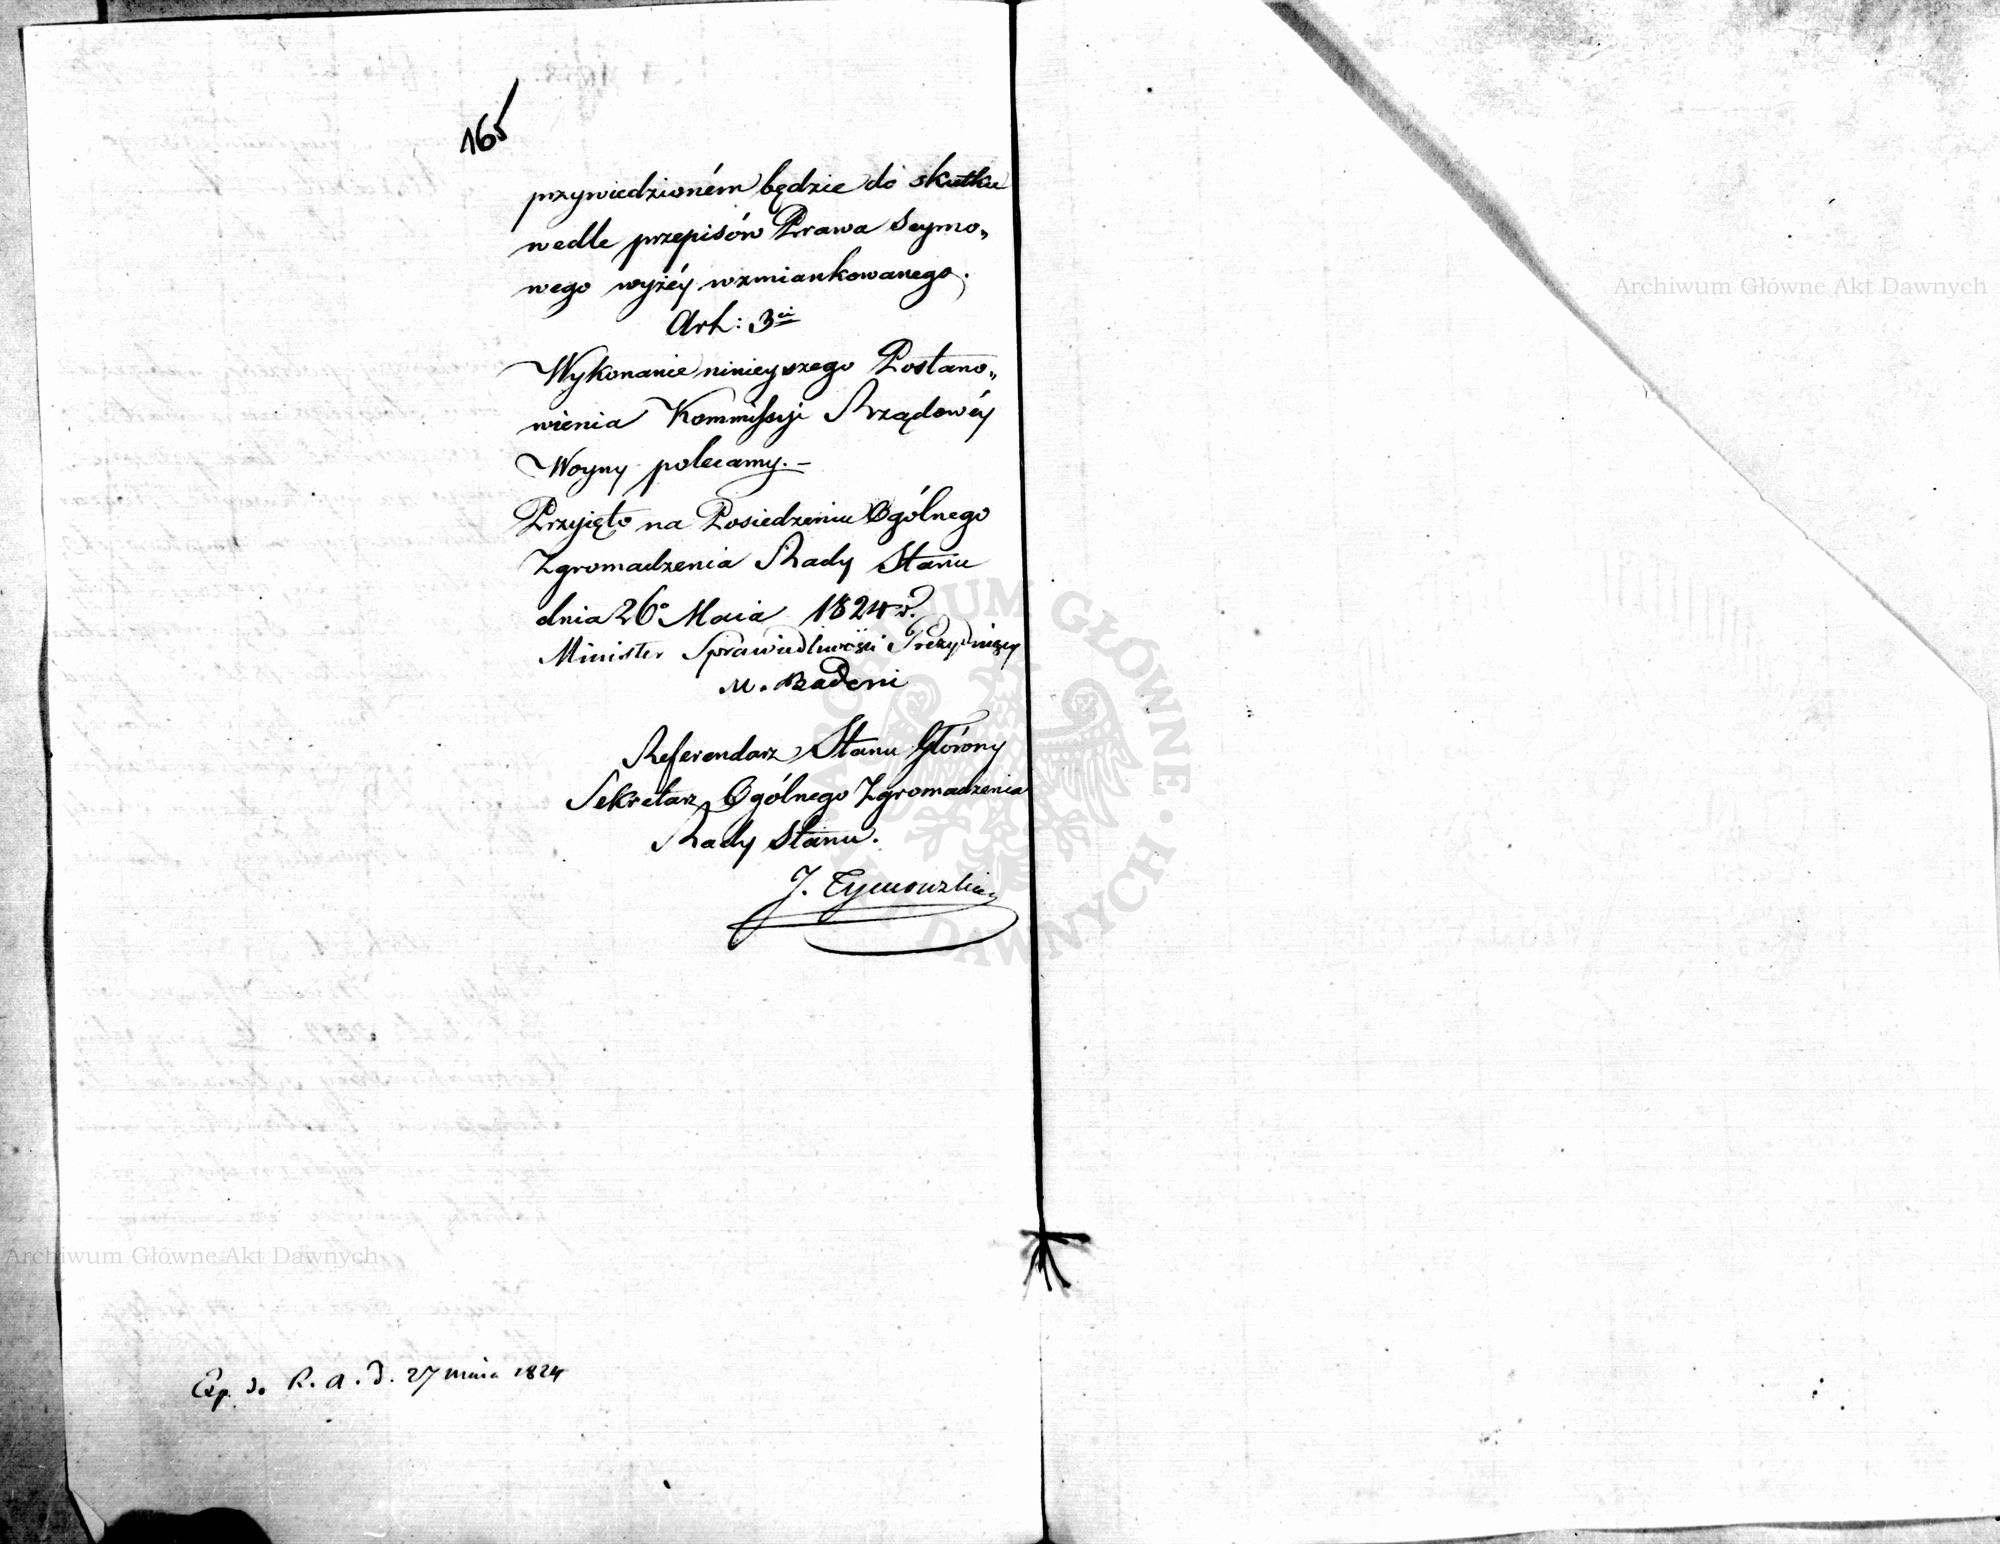 165
przywiedzioném będzie do skutku
wedle przepisów Prawa Seymo„
wego wyżéy wzmiankowanego.
Art: 3ci
Wykonanie ninieyszego Postano„
wienia Kommissyi Rządowéy
Woyny polecamy.–
Przyięto na Posiedzeniu Ogólnego
Zgromadzenia Rady Stanu
dnia 26o Maia 1824 r.
Minister Sprawiedliwości Prezyduiący
M. Badeni
Referendarz Stanu Główny
Sekretarz Ogólnego Zgromadzenia
Rady Stanu.
J. Tymowski
Exp. do R. A. d. 27 maia 1824
Archiwum Główne Akt Dawnych
Archiwum Główne Akt Dawnych
ARCHIWUM GŁÓWNE AKT DAWNYCH